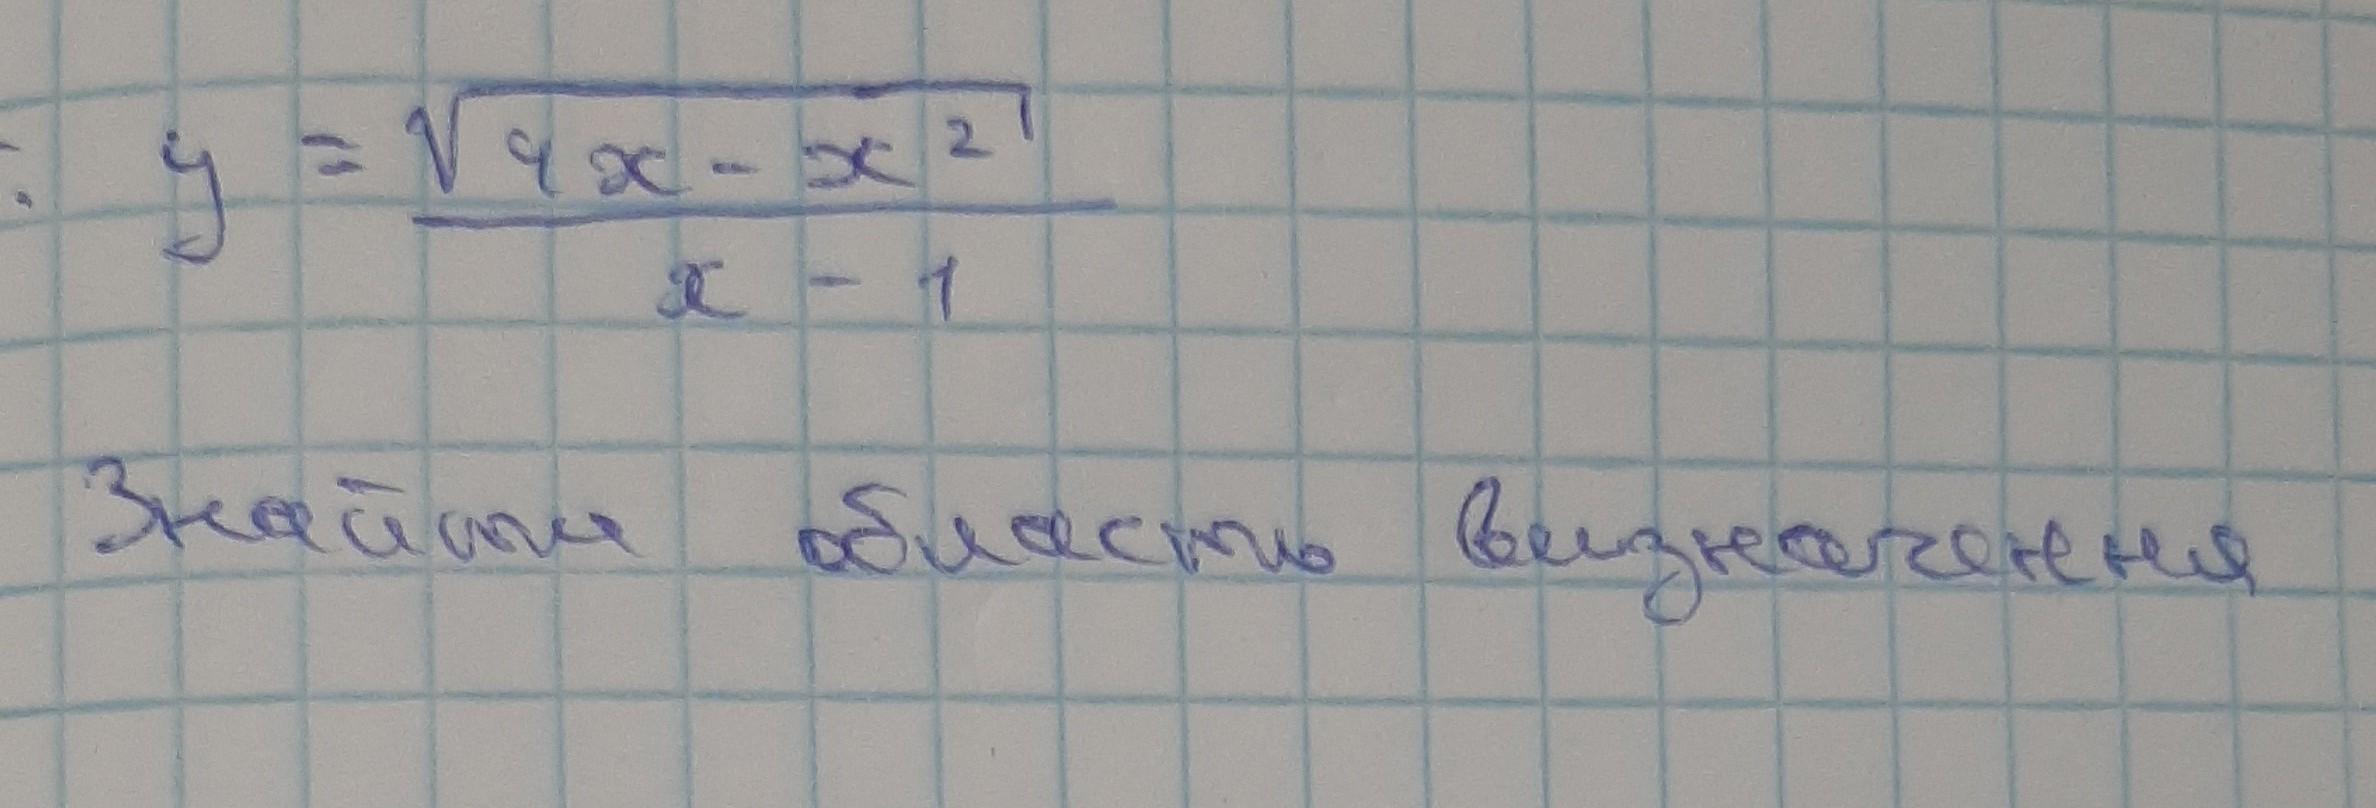 : y = √(4x - x²) / (x - 1)
Знайти область визначення